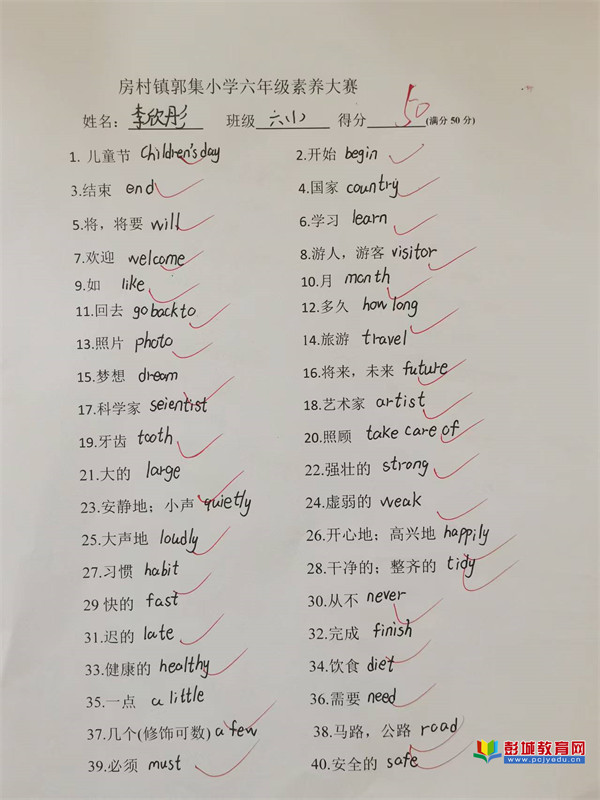 房村镇郭集小学六年级素养大赛
姓名：李欣彤 班级 六(1) 得分 50 (满分 50 分)
1. 儿童节 Children's day 2.开始 begin
3.结束 end 4.国家 country
5.将，将要 will 6.学习 learn
7.欢迎 welcome 8.游人，游客 visitor
9.如 like 10.月 month
11.回去 go back to 12.多久 how long
13.照片 photo 14.旅游 travel
15.梦想 dream 16.将来，未来 future
17.科学家 seientist 18.艺术家 artist
19.牙齿 tooth 20.照顾 take care of
21.大的 large 22.强壮的 strong
23.安静地；小声 quietly 24.虚弱的 weak
25.大声地 loudly 26.开心地；高兴地 happily
27.习惯 habit 28.干净的；整齐的 tidy
29 快的 fast 30.从不 never
31.迟的 late 32.完成 finish
33.健康的 healthy 34.饮食 diet
35.一点 a little 36.需要 need
37.几个(修饰可数) a few 38.马路，公路 road
39.必须 must 40.安全的 safe
彭城教育网
www.pcjyedu.cn